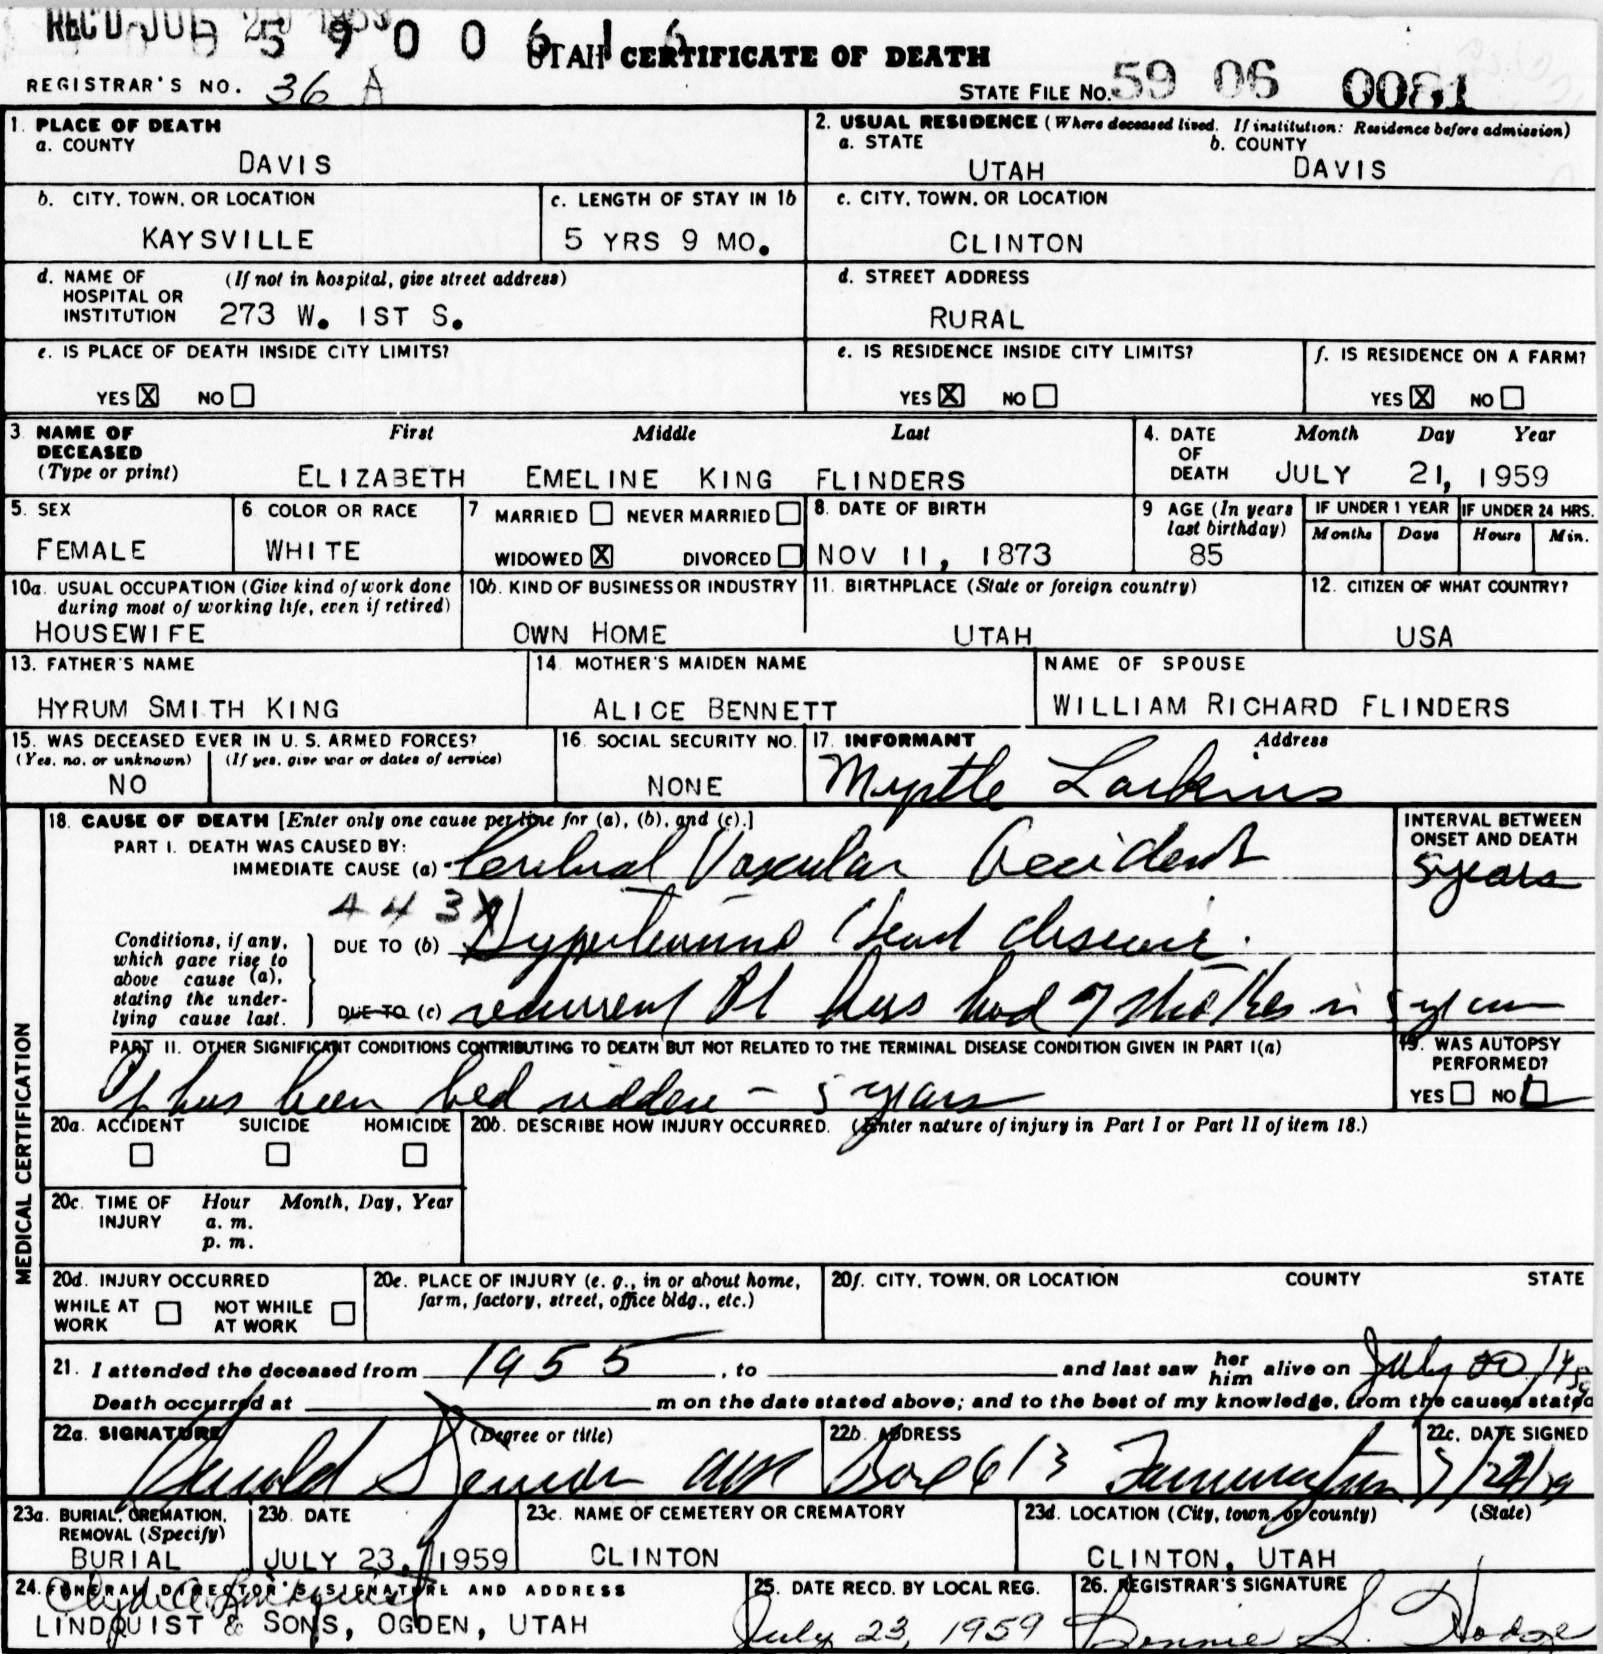 REC'D JUL 20 1959
5 9 0 0 6 1 6
UTAH CERTIFICATE OF DEATH
REGISTRAR'S NO. 36 A
STATE FILE NO. 59 06 0081
1. PLACE OF DEATH
a. COUNTY
DAVIS
2. USUAL RESIDENCE (Where deceased lived. If institution: Residence before admission)
a. STATE b. COUNTY
UTAH DAVIS
b. CITY, TOWN, OR LOCATION
KAYSVILLE
c. LENGTH OF STAY IN 1b
5 YRS 9 MO.
c. CITY, TOWN, OR LOCATION
CLINTON
d. NAME OF HOSPITAL OR INSTITUTION (If not in hospital, give street address)
273 W. 1ST S.
d. STREET ADDRESS
RURAL
e. IS PLACE OF DEATH INSIDE CITY LIMITS?
YES X NO
e. IS RESIDENCE INSIDE CITY LIMITS?
YES X NO
f. IS RESIDENCE ON A FARM?
YES X NO
3. NAME OF DECEASED (Type or print)
First Middle Last
ELIZABETH EMELINE KING FLINDERS
4. DATE OF DEATH
Month Day Year
JULY 21, 1959
5. SEX
FEMALE
6. COLOR OR RACE
WHITE
7 MARRIED NEVER MARRIED
WIDOWED X DIVORCED
8. DATE OF BIRTH
NOV 11, 1873
9 AGE (In years last birthday)
85
IF UNDER 1 YEAR
Months Days
IF UNDER 24 HRS.
Hours Min.
10a. USUAL OCCUPATION (Give kind of work done during most of working life, even if retired)
HOUSEWIFE
10b. KIND OF BUSINESS OR INDUSTRY
OWN HOME
11. BIRTHPLACE (State or foreign country)
UTAH
12. CITIZEN OF WHAT COUNTRY?
USA
13. FATHER'S NAME
HYRUM SMITH KING
14. MOTHER'S MAIDEN NAME
ALICE BENNETT
NAME OF SPOUSE
WILLIAM RICHARD FLINDERS
15. WAS DECEASED EVER IN U.S. ARMED FORCES?
(Yes, no, or unknown) (If yes, give war or dates of service)
NO
16. SOCIAL SECURITY NO.
NONE
17. INFORMANT Address
Myrtle Larkins
MEDICAL CERTIFICATION
18. CAUSE OF DEATH [Enter only one cause per line for (a), (b), and (c).]
PART I. DEATH WAS CAUSED BY:
IMMEDIATE CAUSE (a) Cerebral Vascular Accident
INTERVAL BETWEEN ONSET AND DEATH
5 years
443X
Conditions, if any, which gave rise to above cause (a), stating the underlying cause last.
DUE TO (b) Hypertensive Heart disease.
DUE TO (c) recurrent Pt has had 7 strokes in 5 years
PART II. OTHER SIGNIFICANT CONDITIONS CONTRIBUTING TO DEATH BUT NOT RELATED TO THE TERMINAL DISEASE CONDITION GIVEN IN PART I(a)
Pt has been bed ridden - 5 years
19. WAS AUTOPSY PERFORMED?
YES NO
20a. ACCIDENT SUICIDE HOMICIDE
20b. DESCRIBE HOW INJURY OCCURRED. (Enter nature of injury in Part I or Part II of item 18.)
20c. TIME OF INJURY Hour Month, Day, Year
a. m.
p. m.
20d. INJURY OCCURRED
WHILE AT WORK NOT WHILE AT WORK
20e. PLACE OF INJURY (e. g., in or about home, farm, factory, street, office bldg., etc.)
20f. CITY, TOWN, OR LOCATION COUNTY STATE
21. I attended the deceased from 1955, to and last saw her him alive on July 20, 1959
Death occurred at m on the date stated above; and to the best of my knowledge, from the causes stated
22a. SIGNATURE (Degree or title)
22b. ADDRESS
Box 613 Farmington
22c. DATE SIGNED
23a. BURIAL, CREMATION, REMOVAL (Specify)
BURIAL
23b. DATE
JULY 23, 1959
23c. NAME OF CEMETERY OR CREMATORY
CLINTON
23d. LOCATION (City, town, or county) (State)
CLINTON, UTAH
24. FUNERAL DIRECTOR'S SIGNATURE AND ADDRESS
LINDQUIST & SONS, OGDEN, UTAH
25. DATE RECD. BY LOCAL REG.
July 23, 1959
26. REGISTRAR'S SIGNATURE
Bonnie S. Hodge